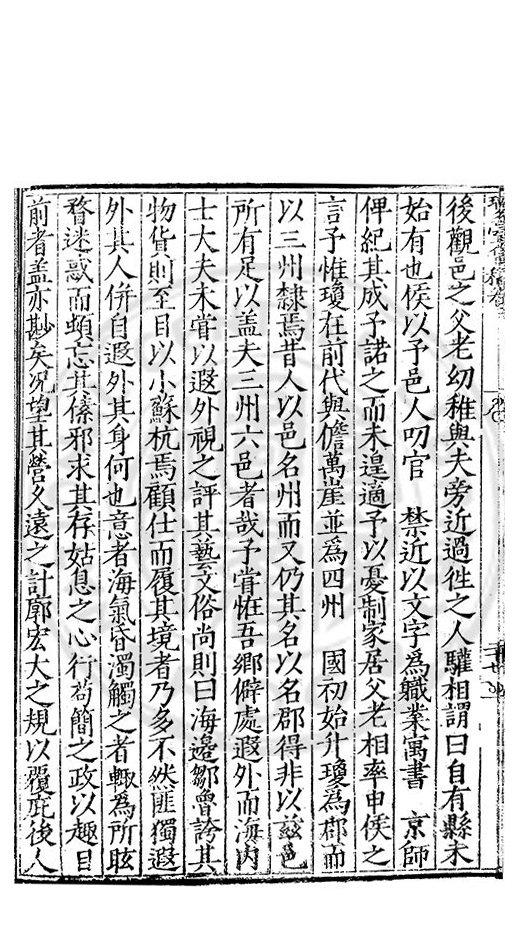 後觀邑之父老幼稚與夫旁近過徃之人驩相謂曰自有縣未
始有也侯以予邑人叨官　禁近以文字爲職業寓書　京師
俾紀其成予諾之而未遑適予以憂制家居父老相率申侯之
言予惟瓊在前代與儋萬崖並爲四州　國初始升瓊爲郡而
以三州隸焉昔人以邑名州而又仍其名以名郡得非以兹邑
所有足以盖夫三州六邑者哉予甞恠吾鄉僻處遐外而海内
士大夫未甞以遐外視之評其藝文俗尚則曰海邊鄒魯誇其
物貨則至目以小蘇杭焉顧仕而履其境者乃多不然匪獨遐
外其人併自遐外其身何也意者海氣昏濁觸之者輙為所眩
瞀迷惑而頓忘其傃邪求其存姑息之心行茍簡之政以趣目
前者盖亦尠矣况望其營久遠之計廓宏大之規以覆庇後人